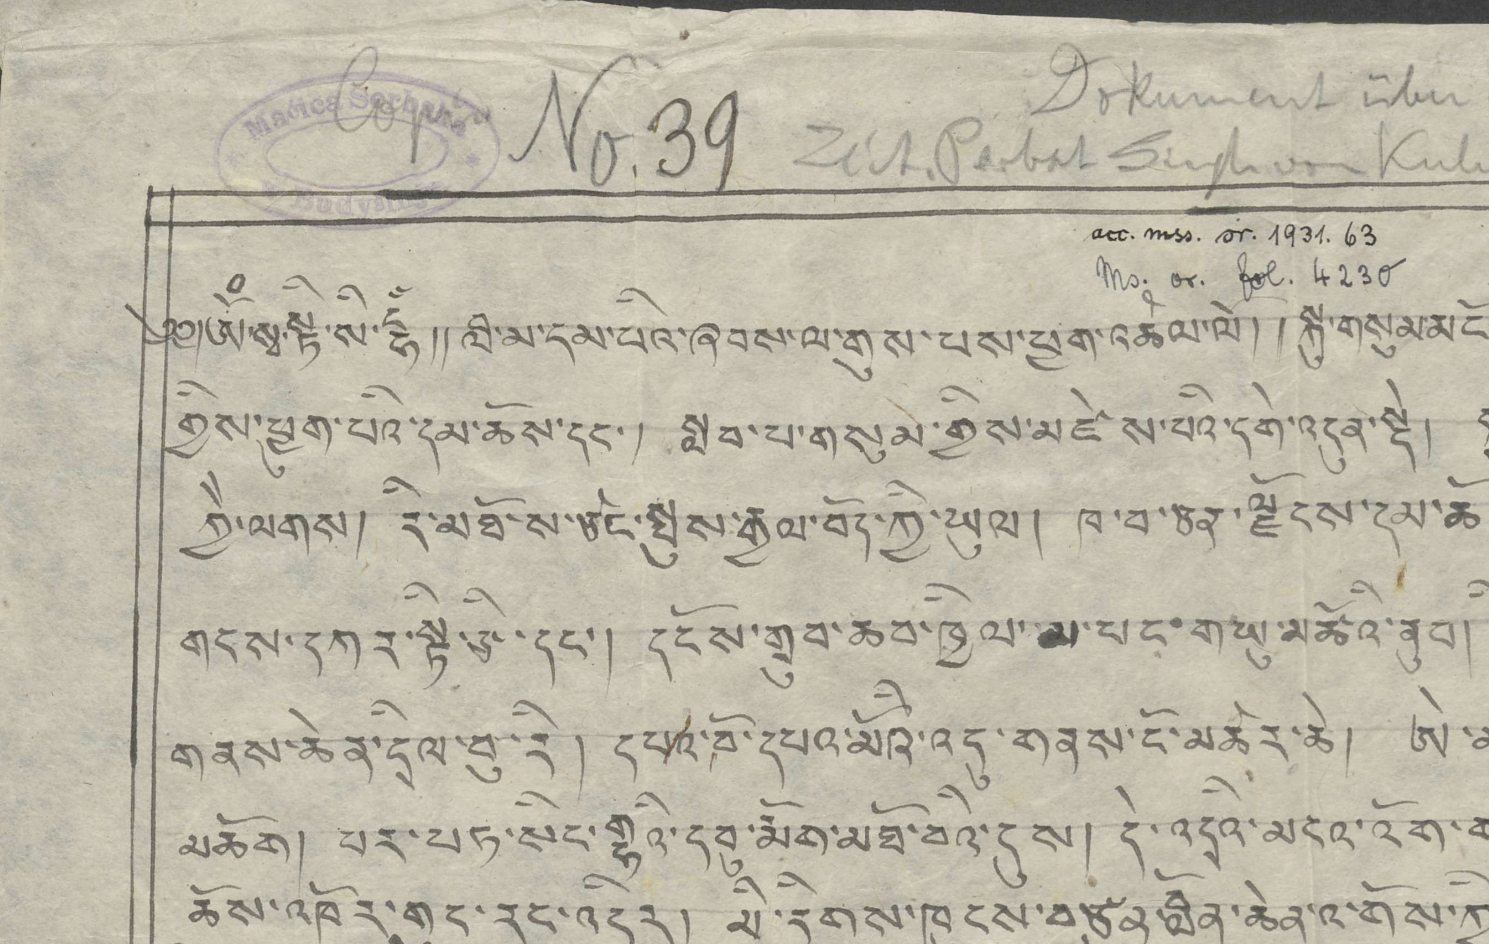 Copie
Maćica Serbska
Budyšin
No. 39
Dokument über
Zeit. Parbat Singh von Kulu
acc. mss. or. 1931. 63
Ms. or. fol. 4230
༄༅།ཨོཾ་སྭ་སྟི་སི་དྷཾ།། བླི་མ་དམ་པའི་ཞབས་ལ་གུས་པས་ཕྱག་འཚལ་ལོ།། སྐུ་གསུམ་མངོ
གྱིས་ཕྱག་པའི་དམ་ཆོས་དང་། སླབ་པ་གསུམ་གྱིས་མཛེས་པའི་དགེ་འདུན་སྡེ།
ཀྱི་ལགས། རི་མཐོ་ས་ཙང་སྤུས་རྒྱལ་བོད་ཀྱི་ཡུལ། ཁ་བ་ཅན་ལྗོངས་དམ་ཆོ
གངས་དཀར་སྟི་ཙེ་དང་། དངོས་གྲུབ་ཆབ་ཁྱིལ་མ་པང་གཡུ་མཚོའི་ནུབ།
གནས་ཆེན་དྲིལ་བུ་རི། དཔའ་བོ་དཔའ་མོའི་འདུ་གནས་ངོ་མཚེར་ཆེ། ཨེ་མ
མཆོག། པར་པཏ་སིང་གྷའི་དབུ་རྨོག་མཐོ་བའི་དུས། དེ་འདྲའི་མངའ་འོག་
ཆོས་འཁོར་གད་རང་འདིར། མི་རིགས་ཁུངས་བཙུན་བློན་ཆེན་འ་གོས་ཀྱི